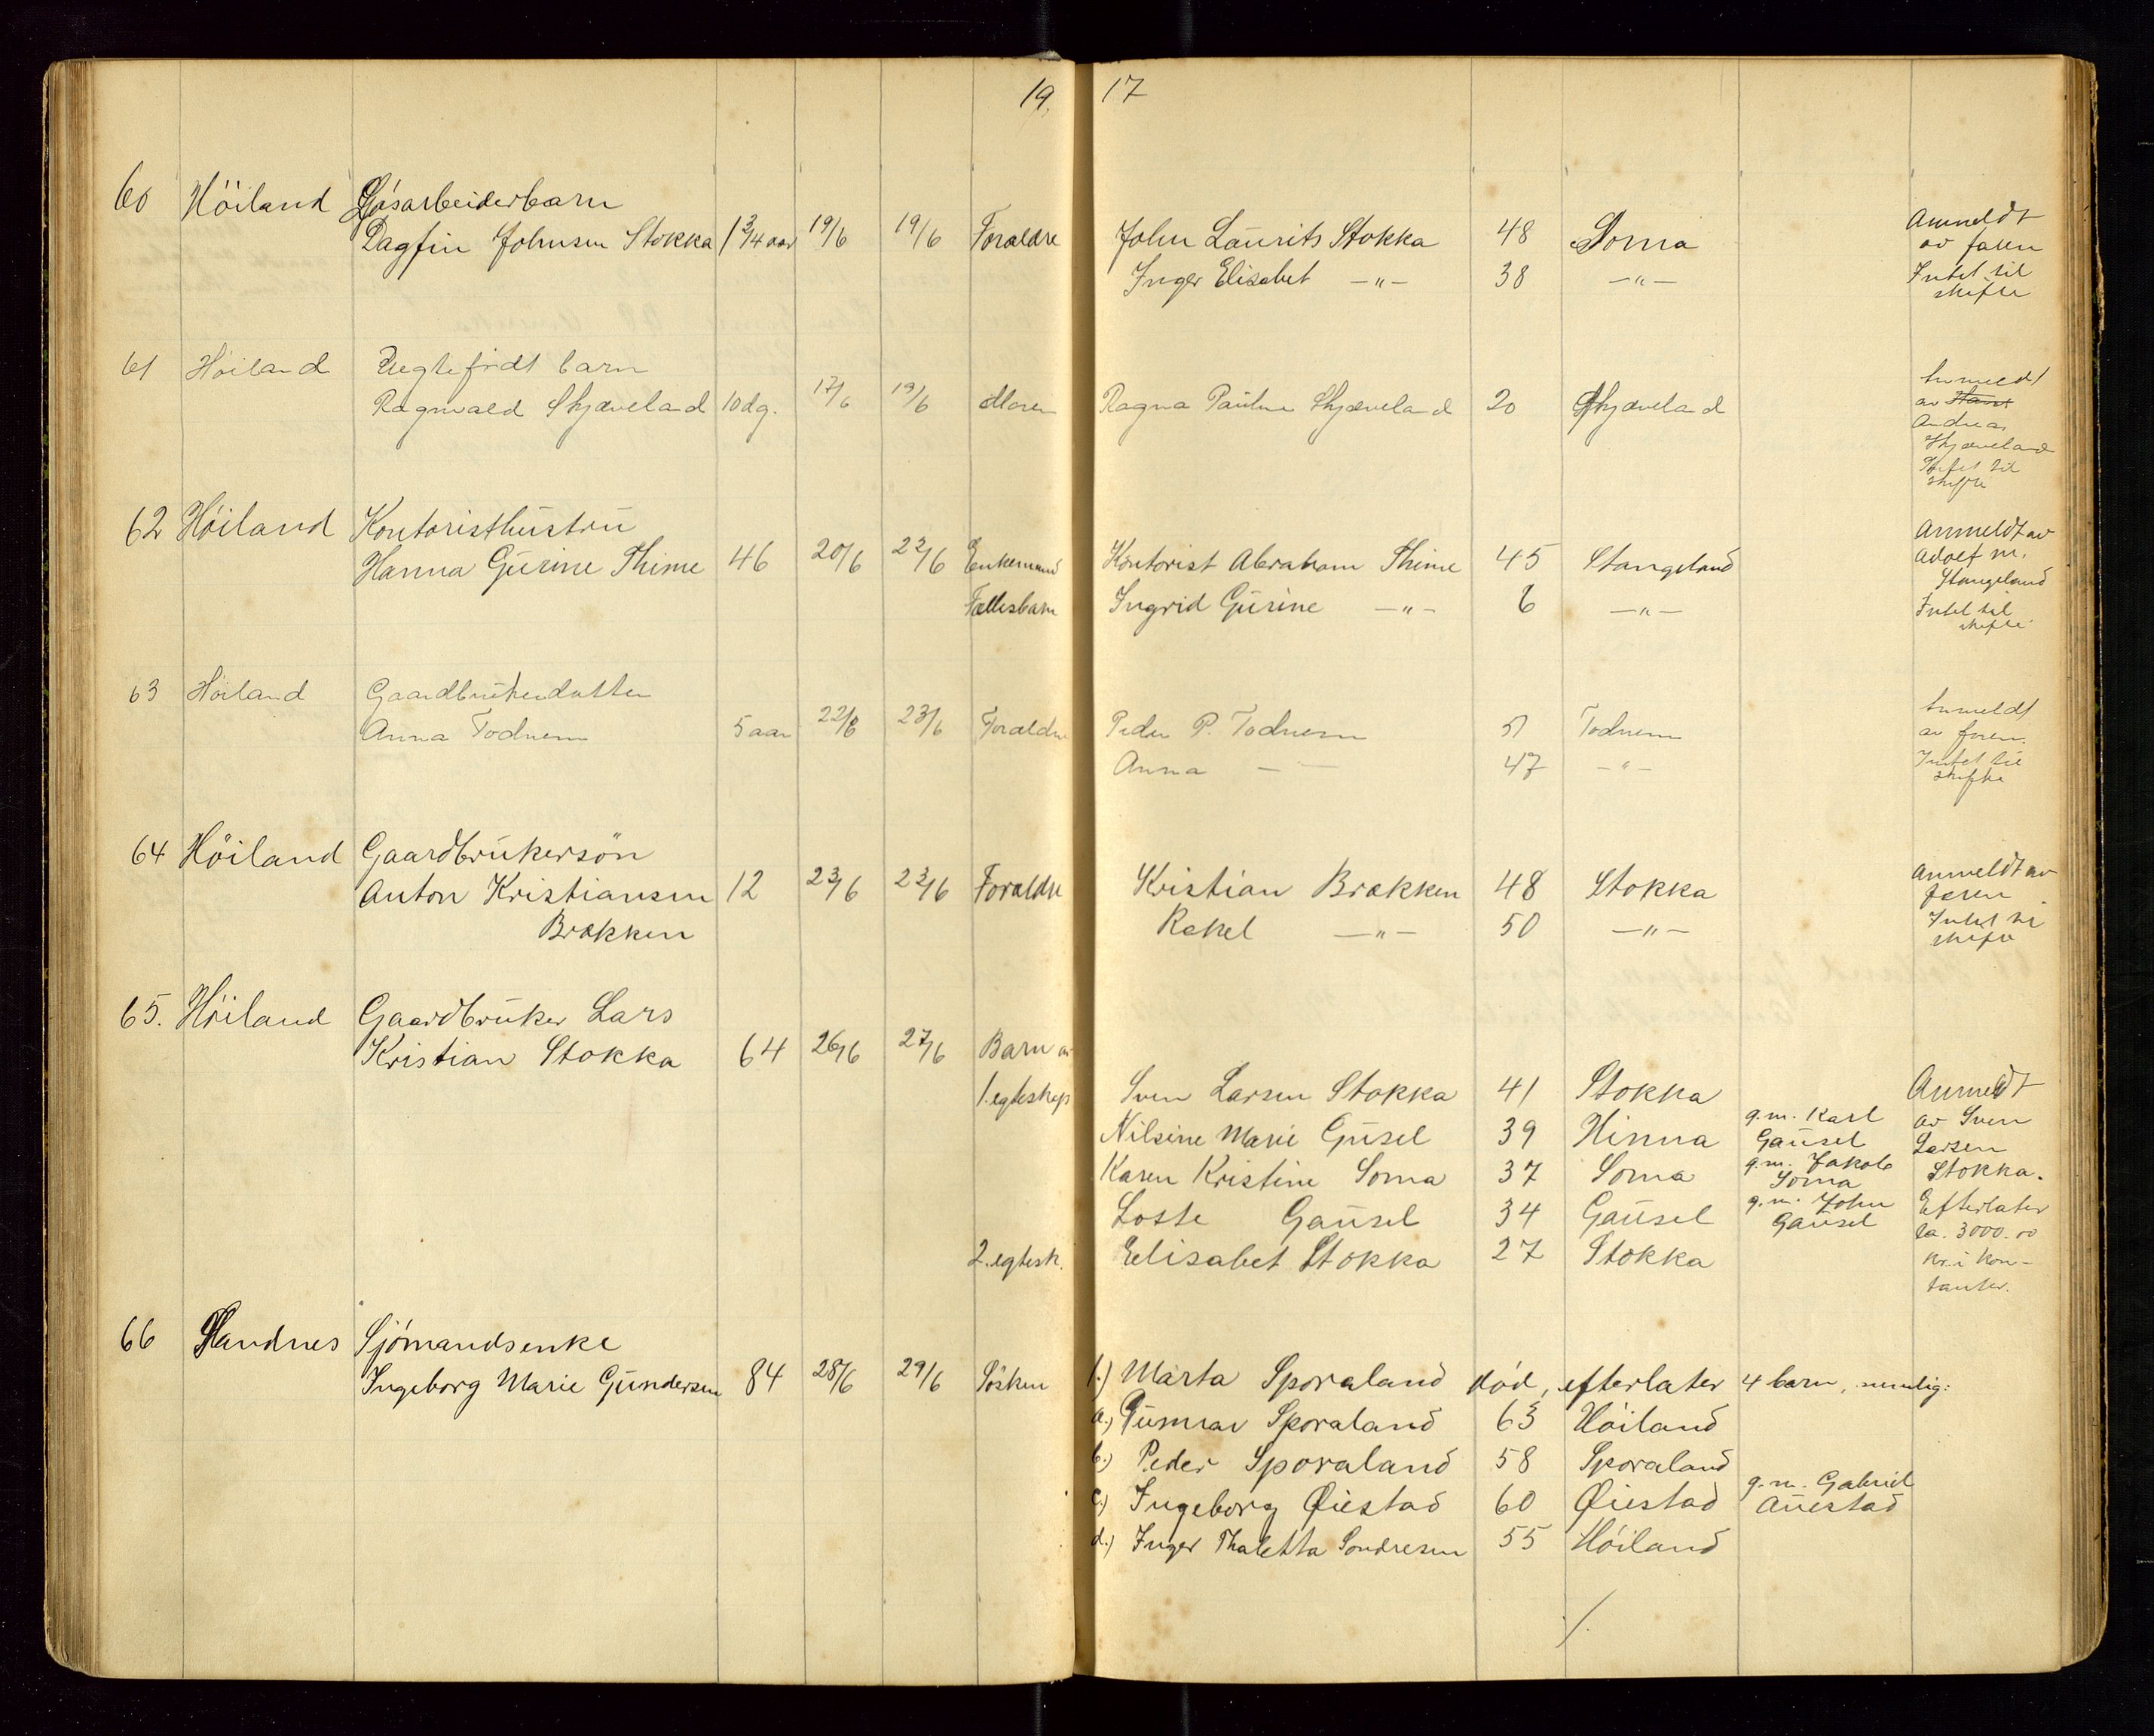 19 17
60 Höiland Løsarbeiderbarn
Dagfin Johnsen Stokka 1 3/4 aar 19/6 19/6 Forældre John Laurits Stokka 48 Soma Anmeldt
av faren
Inger Elisabet —„— 38 —„— Intet til
skifte
61 Höiland Uegtefödt barn
Ragnvald Skjæveland 10 dg. 17/6 19/6 Moren Ragna Pauline Skjæveland 20 Skjæveland Anmeldt
av
Andreas
Skjæveland
Intet til
skifte
62 Höiland Kontoristhustru
Hanna Gurine Thime 46 20/6 22/6 Enkemand Kontorist Abraham Thime 45 Stangeland Anmeldt av
Adolf M.
Stangeland
Fællesbarn Ingrid Gurine —„— 6 —„— Intet til
skifte
63 Höiland Gaardbrukerdatter
Anna Todnem 5 aar 22/6 23/6 Forældre Peder P. Todnem 51 Todnem Anmeldt
av faren.
Anna — — 47 —„— Intet til
skifte
64 Höiland Gaardbrukersön
Anton Kristiansen 12 23/6 23/6 Forældre Kristian Brækken 48 Stokka Anmeldt av
faren
Brækken Rakel —„— 50 —„— Intet til
skifte
65. Höiland Gaardbruker Lars
Kristian Stokka 64 26/6 27/6 Barn av
1. egteskap Sven Larsen Stokka 41 Stokka Anmeldt
Nilsine Marie Gausel 39 Hinna g.m. Karl Gausel av Sven
Larsen
Karen Kristine Soma 37 Soma g.m. Jakob Soma Stokka.
Gausel 34 Gausel g.m. John Gausel Efterlater
ca. 3000.00
2. egtesk. Elisabet Stokka 27 Stokka kr. i kon-
tanter.
66 Sandnes Sjömandsenke
Ingeborg Marie Gundersen 84 28/6 29/6 Sösken 1.) Marta Sporaland död, efterlater 4 barn, nemlig:
a.) Gunnar Sporaland 63 Höiland
b.) Peder Sporaland 58 Sporaland
c.) Ingeborg Øiestad 60 Øiestad g.m. Gabriel Auestad
d.) Inger Thaletta Sondresen 55 Höiland